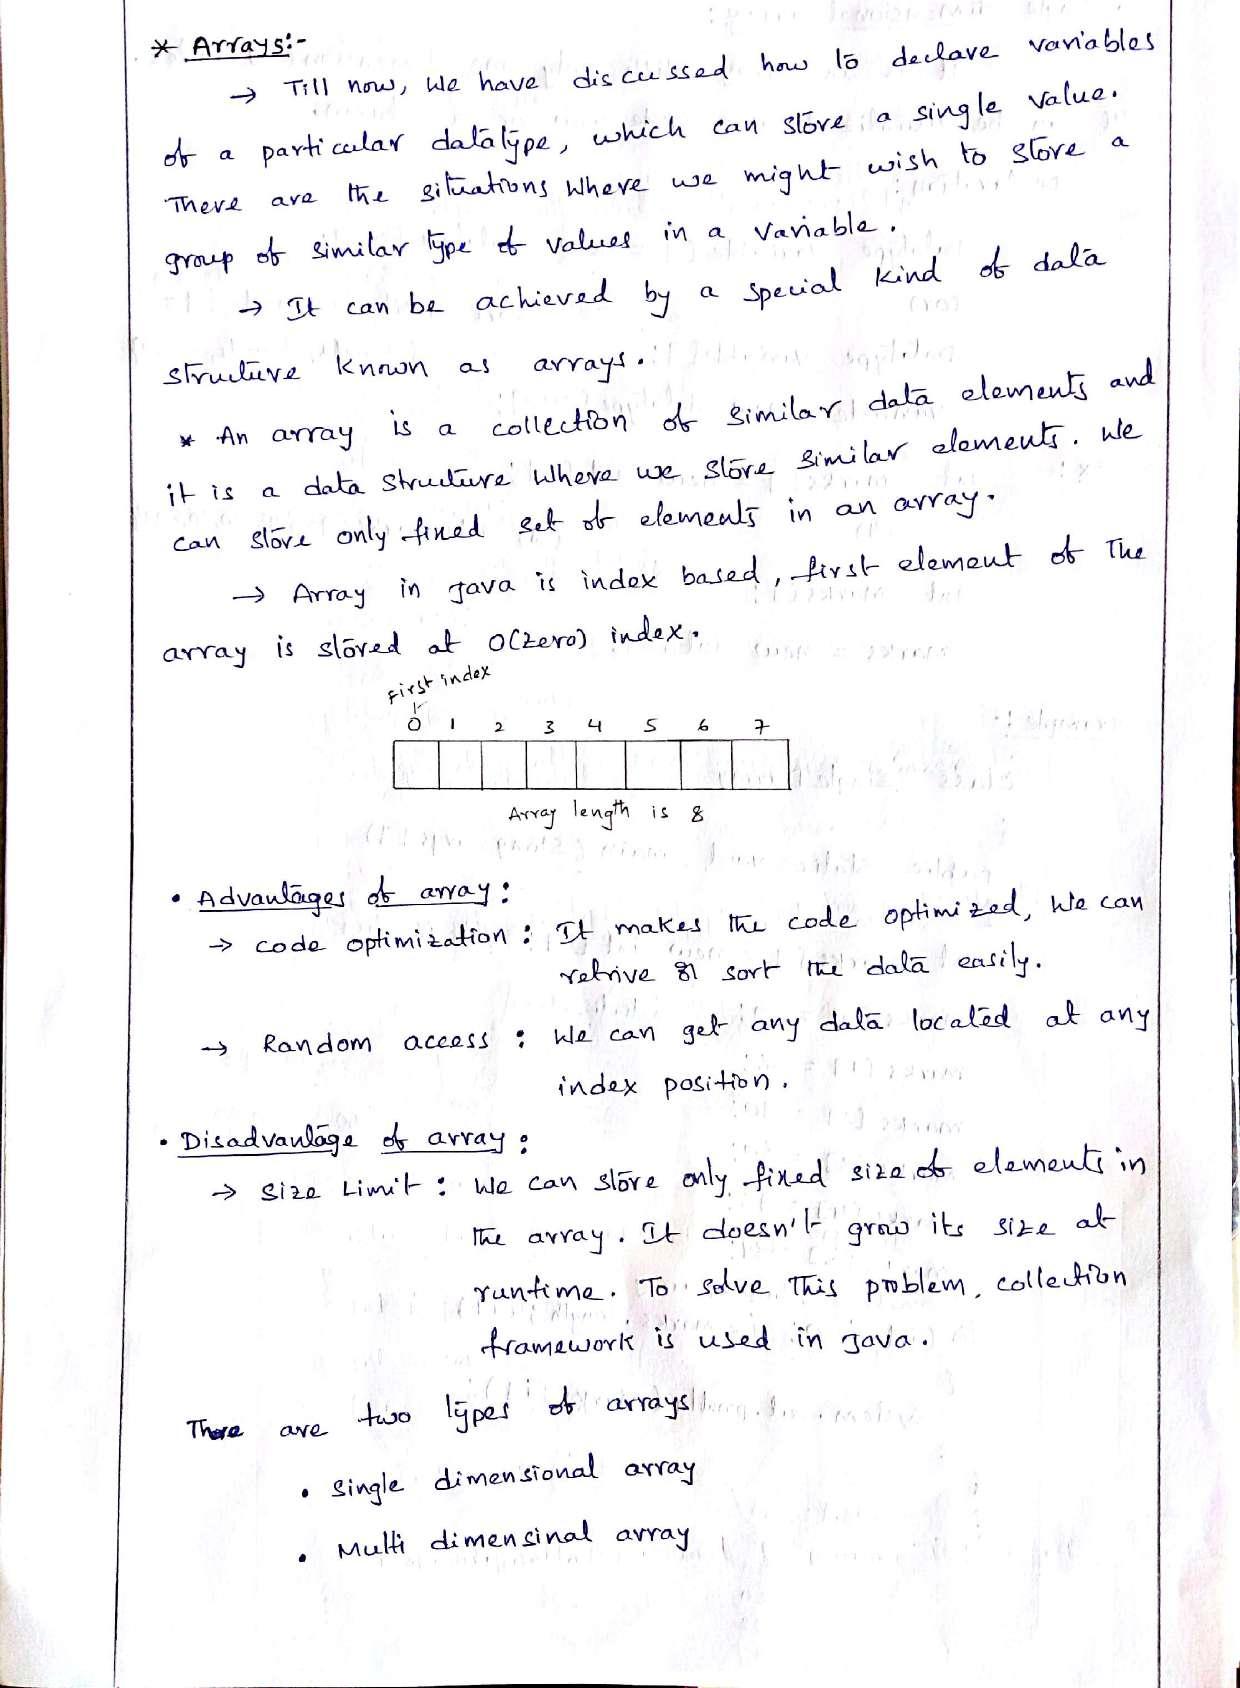 * Arrays:-
→ Till now, we have discussed how to declare variables
of a particular datatype, which can store a single value.
There are the situations where we might wish to store a
group of similar type of values in a variable.
→ It can be achieved by a special kind of data
structure known as arrays.
* An array is a collection of similar data elements and
it is a data structure where we store similar elements. We
can store only fixed set of elements in an array.
→ Array in java is index based, first element of the
array is stored at 0(zero) index.
First index
0 1 2 3 4 5 6 7
Array length is 8
• Advantages of array :
→ code optimization : It makes the code optimized, we can
retrive or sort the data easily.
→ Random access : We can get any data located at any
index position.
• Disadvantage of array :
→ Size Limit : We can store only fixed size of elements in
the array. It doesn't grow its size at
runtime. To solve this problem, collection
framework is used in java.
There are two types of arrays
• Single dimensional array
• Multi dimensinal array